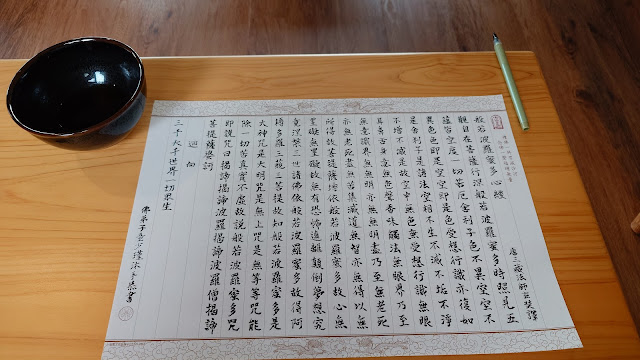 般若波羅蜜多心經
唐三藏法師玄奘譯
觀自在菩薩行深般若波羅蜜多時照見五
蘊皆空度一切苦厄舍利子色不異空空不
異色色即是空空即是色受想行識亦復如
是舍利子是諸法空相不生不滅不垢不淨
不增不減是故空中無色無受想行識無眼
耳鼻舌身意無色聲香味觸法無眼界乃至
無意識界無無明亦無無明盡乃至無老死
亦無老死盡無苦集滅道無智亦無得以無
所得故菩提薩埵依般若波羅蜜多故心無
罣礙無罣礙故無有恐怖遠離顛倒夢想究
竟涅槃三世諸佛依般若波羅蜜多故得阿
耨多羅三藐三菩提故知般若波羅蜜多是
大神咒是大明咒是無上咒是無等等咒能
除一切苦真實不虛故說般若波羅蜜多咒
即說咒曰揭諦揭諦波羅揭諦波羅僧揭諦
菩提薩婆訶
迴向
三千大千世界一切眾生
佛弟子沐手恭書